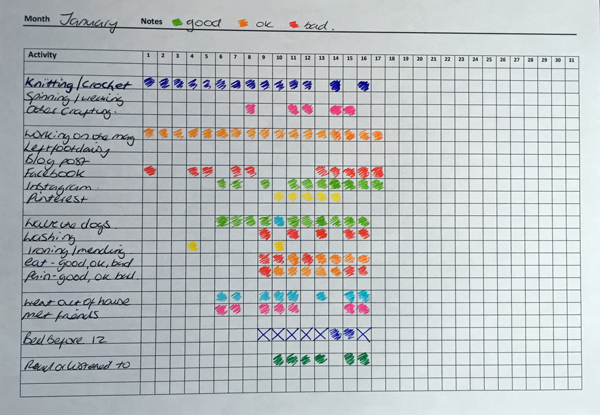 Month January Notes good ok bad.
Activity 1 2 3 4 5 6 7 8 9 10 11 12 13 14 15 16 17 18 19 20 21 22 23 24 25 26 27 28 29 30 31
Knitting/Crochet
Spinning/weaving
Other Crafting.
Working on the mag
Leftfootdaisy
Blog post
Facebook
Instagram
Pinterest
Walk the dogs
Washing
Ironing/mending
eat - good, ok, bad
Pain - good, ok bad.
Went out of house
met friends
Bed before 12
Read or listened to